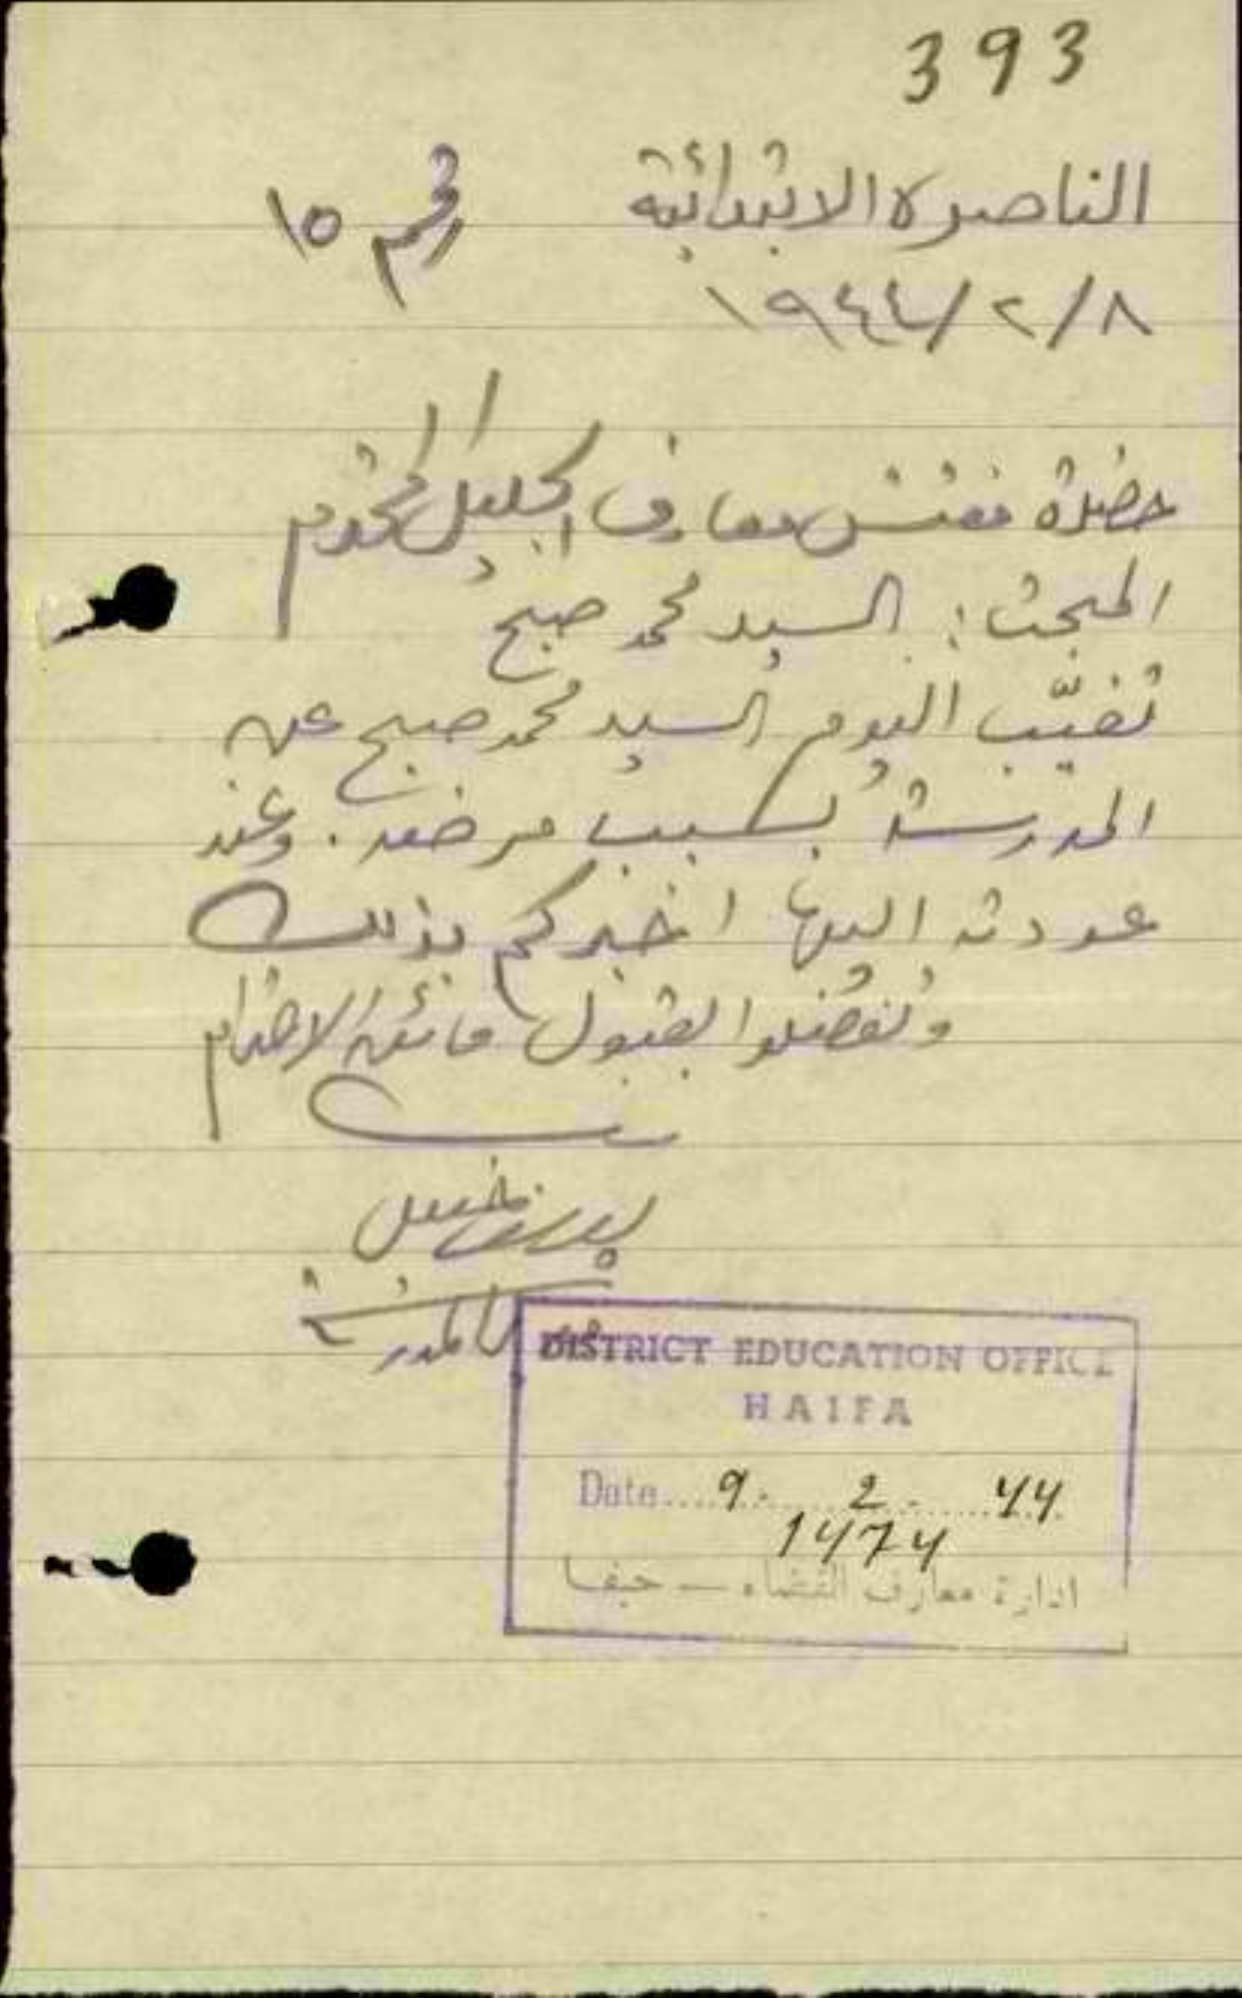 393
الناصرة الابتدائية رقم ١٥
١٩٤٤/٢/٨
حضرة مفتش معارف الجليل المحترم
المبحث: السيد محمد صبح
تغيّب اليوم السيد محمد صبح عن
المدرسة بسبب مرضه. وعند
عودته اليها اخبركم بذلك
وتفضلوا بقبول فائق الاحترام
مدير المدرسة
DISTRICT EDUCATION OFFICE
HAIFA
Date....9-.....2-.....44
1474
ادارة معارف القضاء — حيفا